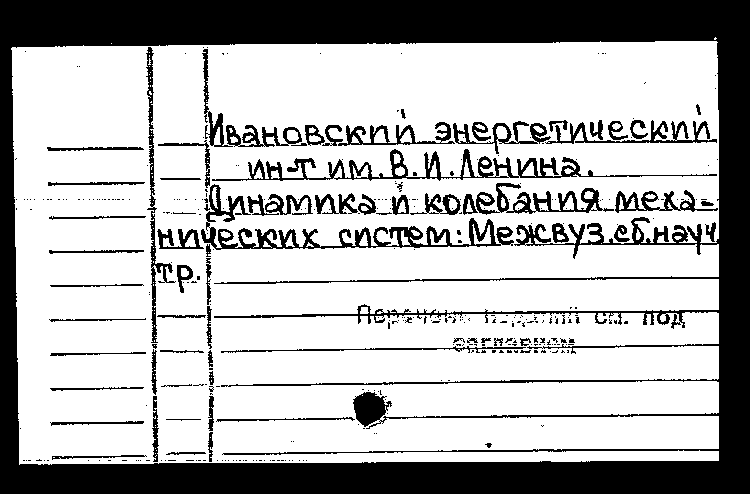 Ивановский энергетический
ин-т им. В.И.Ленина.
Динамика и колебания меха-
нических систем: Межвуз.сб.науч.
тр.
Перечень изданий см. под
заглавием